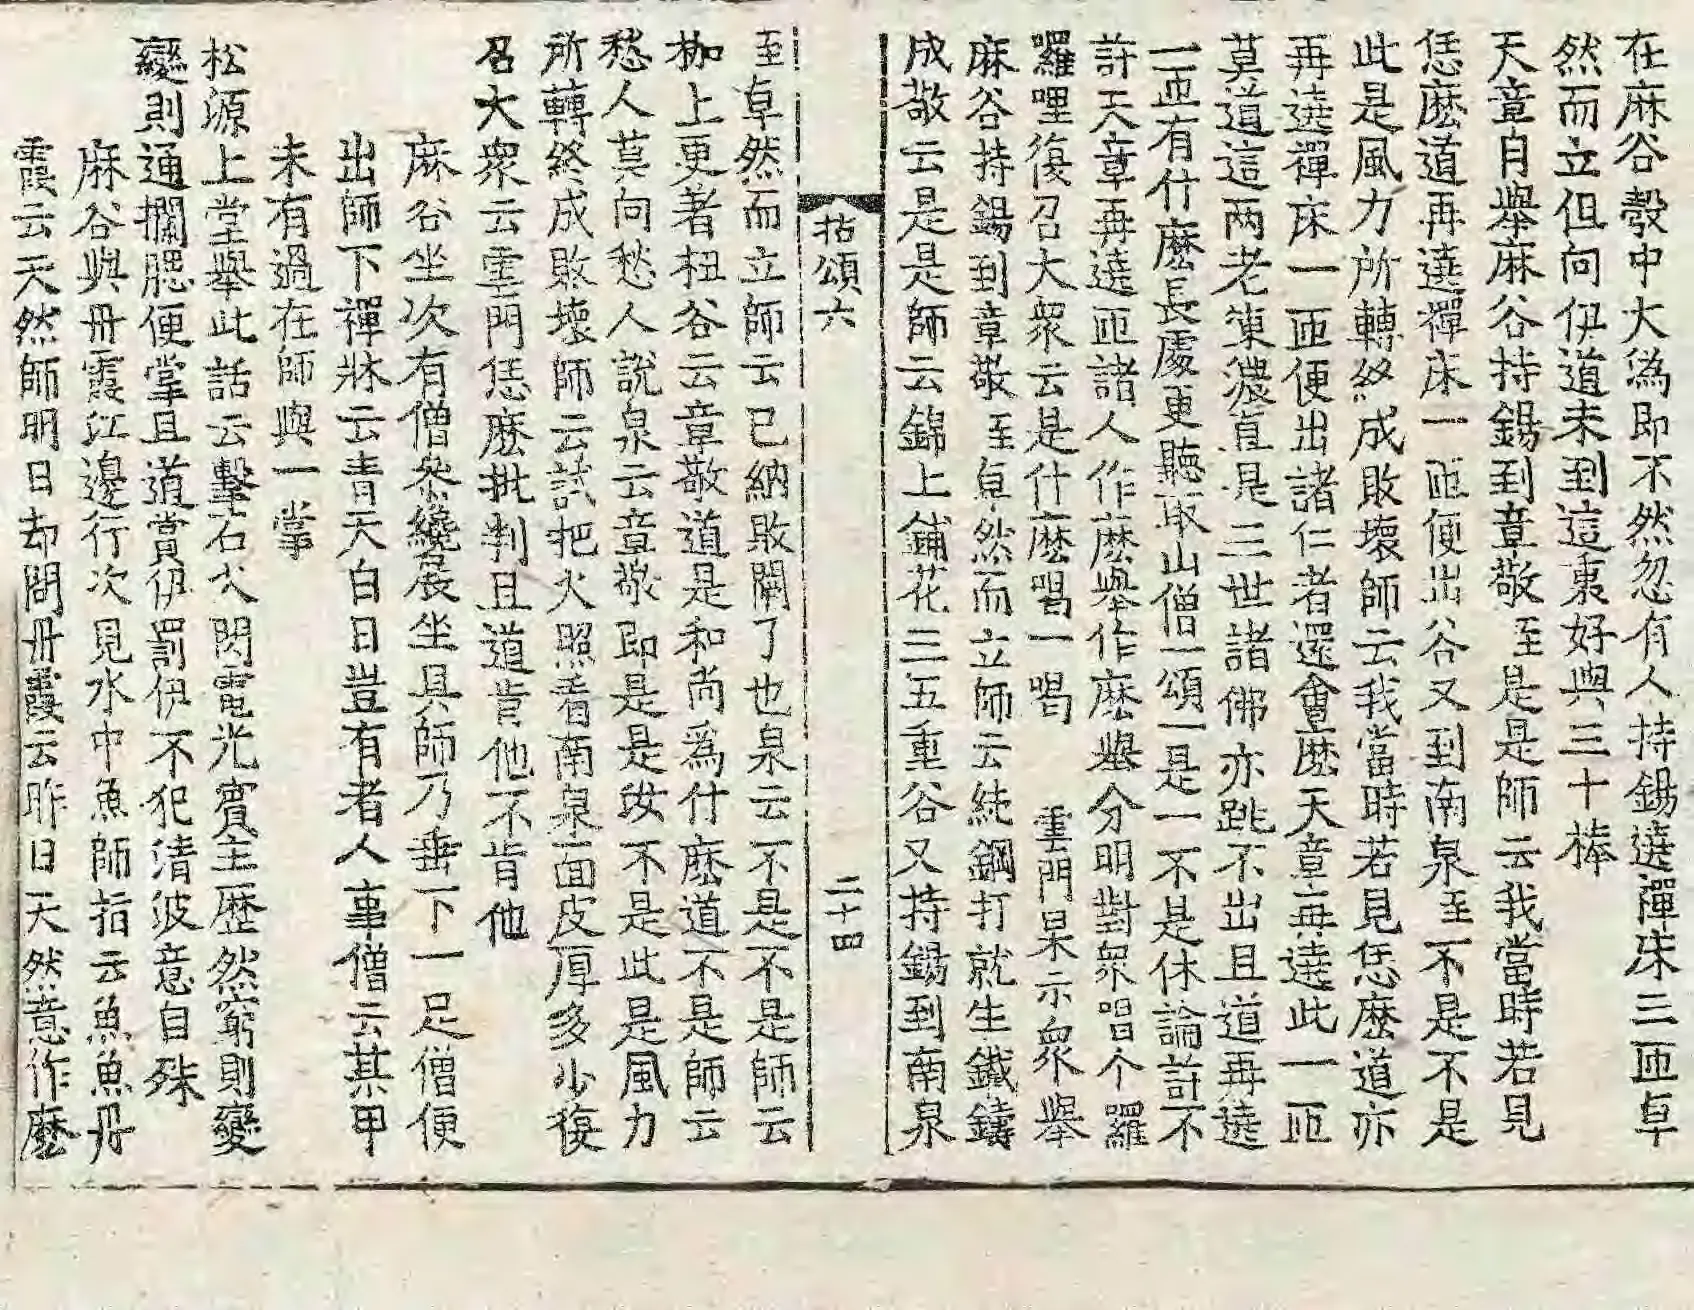 在麻谷彀中大潙即不然忽有人持錫遶禪床三匝卓
然而立但向伊道未到這裏好與三十棒
天章月擧麻谷持錫到章敬至是是師云我當時若見
恁麽道再遶禪床一匝便出谷又到南泉至不是不是
此是風力所轉終成敗壞師云我當時若見恁麽道亦
再遶禪床一匝便出諸仁者還會麽天章再遶此一匝
莫道這兩老凍濃直是三世諸佛亦跳不出且道再遶
一匝有什麽長處更聽取山僧一頌一是一不是休論計不
許天章再遶匝諸人作麽擧作麽擧分明對衆唱个羅
囉哩復召大衆云是什麽喝一喝 雲門杲示衆擧
麻谷持錫到章敬至卓然而立師云純鋼打就生鐵鑄
成敬云是是師云錦上鋪花三五重谷又持錫到南泉
拈頌六 二十四
至卓然而立師云已納敗闕了也泉云不是不是師云
枷上更著杻谷云章敬道是和尚爲什麽道不是師云
愁人莫向愁人說泉云章敬即是是汝不是此是風力
所轉終成敗壞師云試把火照看南泉面皮厚多少復
召大衆云雲門恁麽批判且道肯他不肯他
麻谷坐次有僧叅纔展坐具師乃垂下一足僧便
出師下禪牀云靑天白日豈有者人事僧云某甲
未有過在師與一掌
松源上堂擧此話云擊石火閃電光賓主歷然窮則變
變則通攔腮便掌且道賞伊罰伊不犯淸波意自殊
麻谷與丹霞江邊行次見水中魚師指云魚魚丹
霞云天然師明日却問丹霞云昨日天然意作麽